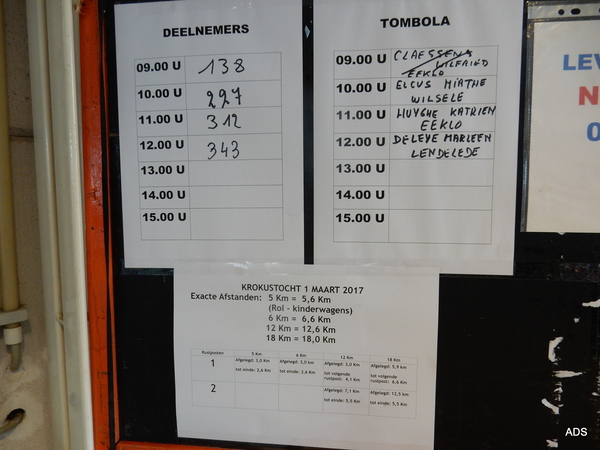 DEELNEMERS
09.00 U 138
10.00 U 227
11.00 U 312
12.00 U 343
13.00 U
14.00 U
15.00 U
TOMBOLA
09.00 U CLAESSENS
WILFRIED
EEKLO
10.00 U ELCUS MIRTHE
WILSELE
11.00 U HUYGHE KATRIEN
EEKLO
12.00 U DELEYE MARLEEN
LENDELEDE
13.00 U
14.00 U
15.00 U
LEV
N
0
KROKUSTOCHT 1 MAART 2017
Exacte Afstanden: 5 Km = 5,6 Km
(Rol - kinderwagens)
6 Km = 6,6 Km
12 Km = 12,6 Km
18 Km = 18,0 Km
Rustposten 5 Km 6 Km 12 Km 18 Km
1 Afgelegd: 3,0 Km Afgelegd: 3,0 Km Afgelegd: 3,0 Km Afgelegd: 5,9 Km
tot einde: 2,6 Km tot einde: 3,6 Km tot volgende tot volgende
rustpost: 4,1 Km rustpost: 6,6 Km
2 Afgelegd: 7,1 Km Afgelegd: 12,5 Km
tot einde: 5,5 Km tot einde: 5,5 Km
ADS